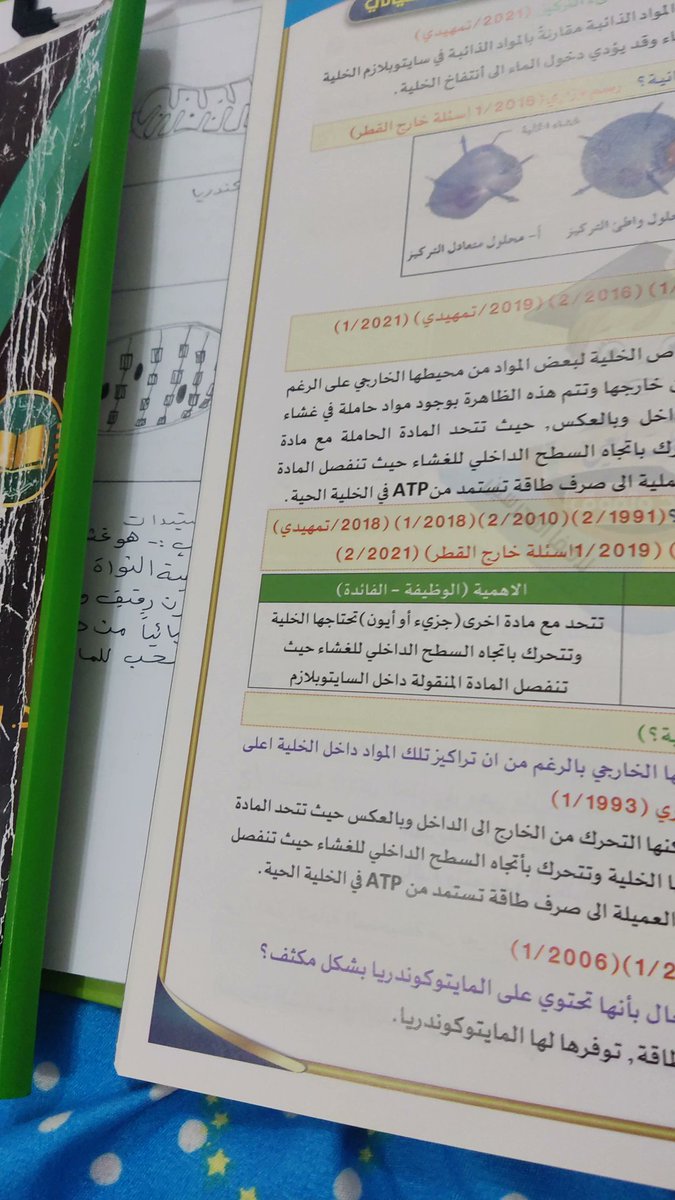 (2021/تمهيدي)
المواد الذائبة مقارنةً بالمواد الذائبة في سايتوبلازم الخلية
وقد يؤدي دخول الماء الى أنتفاخ الخلية.
1/2018 أسئلة خارج القطر)
غشاء الخلية
واطئ التركيز
أ- محلول متعادل التركيز
(2/2016) (2019/تمهيدي) (1/2021)
الخلية لبعض المواد من محيطها الخارجي على الرغم
خارجها وتتم هذه الظاهرة بوجود مواد حاملة في غشاء
وبالعكس, حيث تتحد المادة الحاملة مع مادة
باتجاه السطح الداخلي للغشاء حيث تنفصل المادة
الى صرف طاقة تستمد من ATP في الخلية الحية.
(2/1991) (2/2010) (1/2018) (2018/تمهيدي)
(1/2019اسئلة خارج القطر) (2/2021)
الاهمية (الوظيفة - الفائدة)
تتحد مع مادة اخرى (جزيء أو أيون) تحتاجها الخلية
وتتحرك باتجاه السطح الداخلي للغشاء حيث
تنفصل المادة المنقولة داخل السايتوبلازم
الخارجي بالرغم من ان تراكيز تلك المواد داخل الخلية اعلى
(1/1993)
التحرك من الخارج الى الداخل وبالعكس حيث تتحد المادة
الخلية وتتحرك بأتجاه السطح الداخلي للغشاء حيث تنفصل
العميلة الى صرف طاقة تستمد من ATP في الخلية الحية.
(1/2006)
بأنها تحتوي على المايتوكوندريا بشكل مكثف؟
توفرها لها المايتوكوندريا.